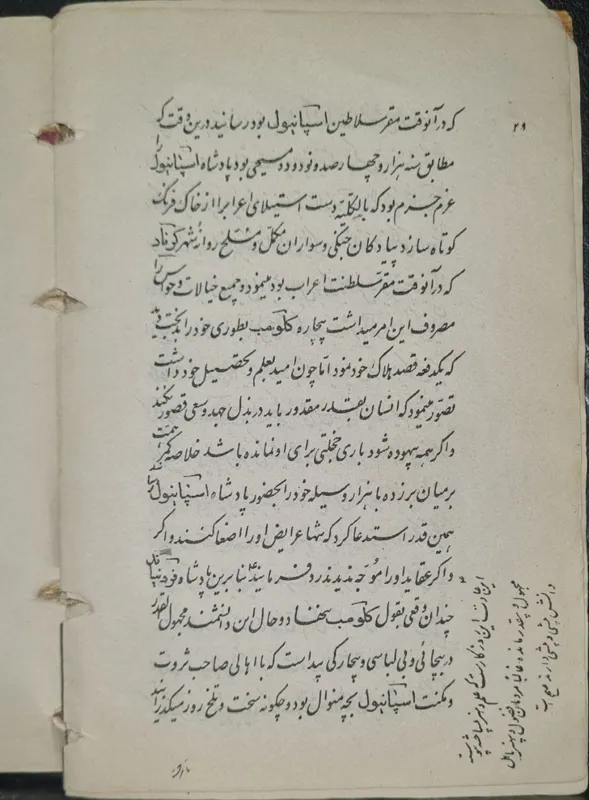 ۲۹
که در آنوقت مقر سلاطین اسپانیول بود رسانید درین وقت که
مطابق سنه هزار و چهار صد و نود و دو مسیحی بود پادشاه اسپانیول را
عزم جزم بود که بالکلیّه دست استیلای اعراب را از خاک فرنگ
کوتاه سازد پیادکان جنکی و سواران مکمل و مسلح روانهٔ شهر کرناد
که در آنوقت مقر سلطنت اعراب بود مینمود و جمیع خیالات و حواس را
مصروف این امر میداشت بیچاره کلومب بطوری خود را بدبخت دید
که یکدفعه قصد هلاک خود نمود اما چون امید بعلم و تحصیل خود داشت
تصور مینمود که انسان بقدر مقدور باید در بذل جهد و سعی قصور نکند
و اکر همه بیهوده شود باری خجلتی برای او نمانده باشد خلاصه کمر همت
بر میان بر زده با هزار وسیله خود را بحضور پادشاه اسپانیول رسانید
همین قدر استدعا کرد که شما عرایض او را اصغا کنند و اکر
و اکر عقاید او را موجه ندیدند رد فرمایند بنا برین پادشاه و
چندان وقعی بقول کلومب ننهاد و حال این دانشمند مجهول القدر
در بیجائی و بی لباسی و بیچارکی پیداست که با اهالی صاحب ثروت
و مکنت اسپانیول بچه منوال بود و چکونه سخت و تلخ روز میکذرانید